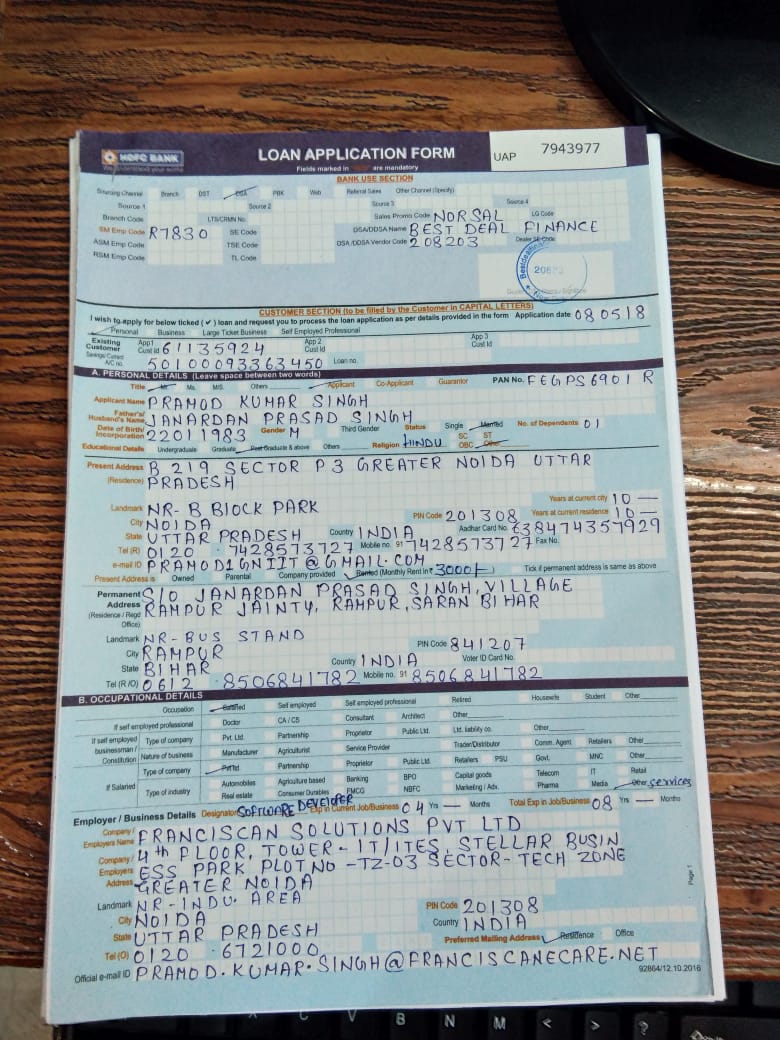 HDFC BANK
We understand your world
LOAN APPLICATION FORM
UAP 7943977
Fields marked in are mandatory
BANK USE SECTION
Sourcing Channel Branch DST DSA PBK Web Referral Sales Other Channel (Specify)
Source 1 Source 2 Source 3 Source 4
Branch Code LTS/CRMN No. Sales Promo Code NORSAL LG Code
SM Emp Code R7830 SE Code DSA/DDSA Name BEST DEAL FINANCE
ASM Emp Code TSE Code DSA/DDSA Vendor Code 208203 Dealer SE Code
RSM Emp Code TL Code
CUSTOMER SECTION (to be filled by the Customer in CAPITAL LETTERS)
I wish to apply for below ticked (✓) loan and request you to process the loan application as per details provided in the form Application date 080518
Personal Business Large Ticket Business Self Employed Professional
Existing Customer App1 Cust Id 61135924 App 2 Cust Id App 3 Cust Id
Savings/Current A/C no. 50100093363450 Loan no.
A. PERSONAL DETAILS (Leave space between two words)
Title Mr. Ms. M/S. Others Applicant Co-Applicant Guarantor PAN No. FEGPS6901R
Applicant Name PRAMOD KUMAR SINGH
Father's/ Husband's Name JANARDAN PRASAD SINGH
Date of Birth/ Incorporation 22011983 Gender M Third Gender Status Single Married No. of Dependents 01
Educational Details Undergraduate Graduate Post Graduate & above Others Religion HINDU SC ST OBC Other
Present Address B 219 SECTOR P3 GREATER NOIDA UTTAR
(Residence) PRADESH
Landmark NR-B BLOCK PARK Years at current city 10 —
City NOIDA PIN Code 201308 Years at current residence 10 —
State UTTAR PRADESH Country INDIA Aadhar Card No. 638474357929
Tel (R) 0120 7428573727 Mobile no. 91 7428573727 Fax No.
e-mail ID PRAMOD1GNIIT@GMAIL.COM
Present Address is Owned Parental Company provided Rented (Monthly Rent in ₹ 3000/-) Tick if permanent address is same as above
Permanent Address S/O JANARDAN PRASAD SINGH, VILLAGE
(Residence / Regd Office) RAMPUR JAINTY, RAMPUR, SARAN BIHAR
Landmark NR-BUS STAND
City RAMPUR PIN Code 841207
State BIHAR Country INDIA Voter ID Card No.
Tel (R/O) 0612 8506841782 Mobile no. 91 8506841782
B. OCCUPATIONAL DETAILS
Occupation Salaried Self employed Self employed professional Retired Housewife Student Other
If self employed professional Doctor CA / CS Consultant Architect Other
If self employed businessman / Constitution Type of company Pvt. Ltd. Partnership Proprietor Public Ltd. Ltd. liability co. Other
Nature of business Manufacturer Agriculturist Service Provider Trader/Distributor Comm. Agent Retailers Other
If Salaried Type of company Pvt ltd Partnership Proprietor Public Ltd. Retailers PSU Govt. MNC Other
Type of industry Automobiles Agriculture based Banking BPO Capital goods Telecom IT Retail
Real estate Consumer Durables FMCG NBFC Marketing / Adv. Pharma Media Other services
Employer / Business Details Designation SOFTWARE DEVELOPER Exp in Current Job/Business 04 Yrs — Months Total Exp in Job/Business 08 Yrs — Months
Company / Employers Name FRANCISCAN SOLUTIONS PVT LTD
Company / Employers Address 4th FLOOR, TOWER-IT/ITES, STELLAR BUSIN
ESS PARK PLOT NO-TZ-03 SECTOR-TECH ZONE
GREATER NOIDA
Landmark NR-INDU. AREA
City NOIDA PIN Code 201308
State UTTAR PRADESH Country INDIA
Tel (O) 0120 6721000 Preferred Mailing Address Residence Office
Official e-mail ID PRAMOD.KUMAR.SINGH@FRANCISCANECARE.NET
Page 1
92864/12.10.2016
C V B N M < > ?